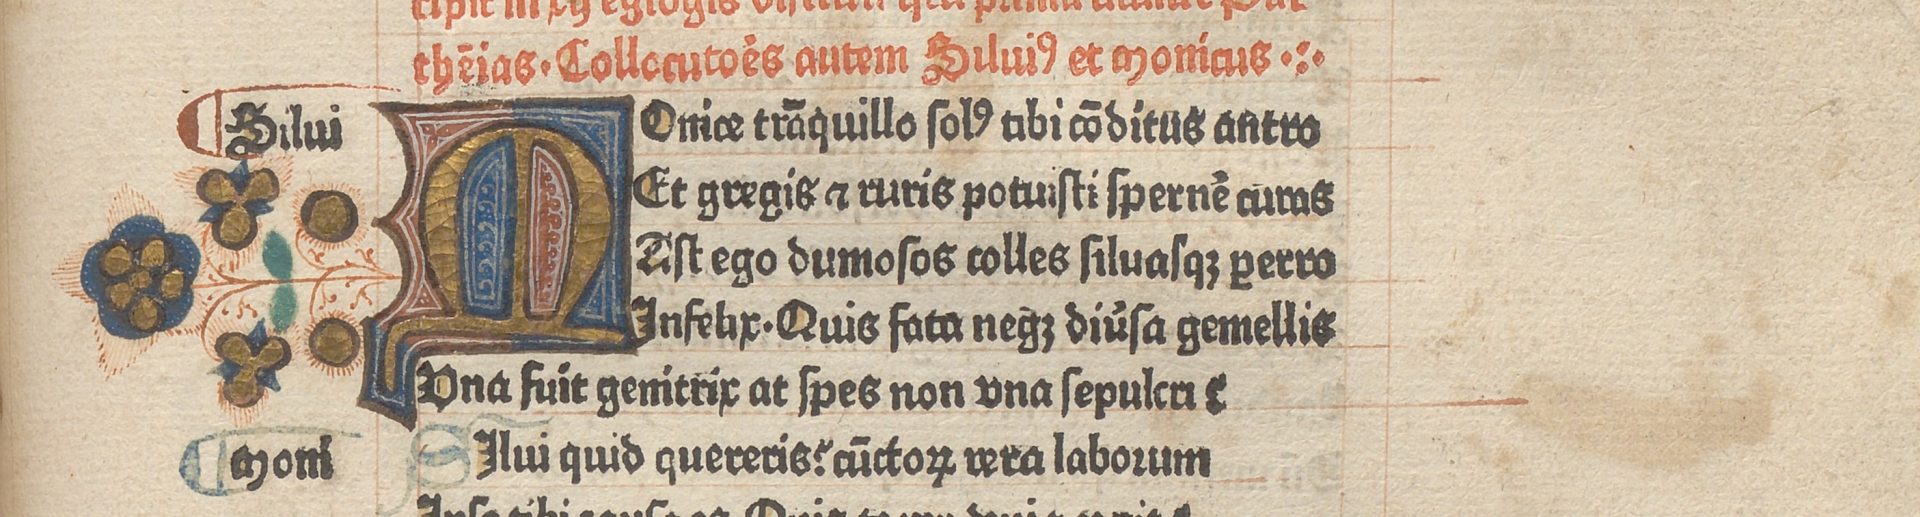 thēias. Collocutōes autem Siluiꝰ et Monicus
Silui
MOnice trāquillo ſolꝰ tibi cōditus antro
Et gregis ⁊ ruris potuiſti ſpernē curas
Aſt ego dumoſos colles ſiluaſqꝫ ꝑerro
Infelix. Quis fata negꝫ diūſa gemellis
Vna fuit genitrix at ſpes non vna ſepulcri
Moni
SIlui quid quereris? cūctoꝝ vera laborum